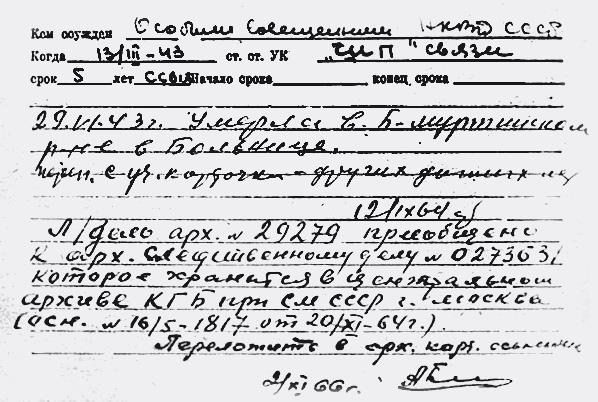 Кем осужден Особым Совещанием НКВД СССР
Когда 13/III-43 ст. ст. УК "ШП" связи
срок 5 лет ссылки Начало срока конец срока
29.VI.43г. Умерла в Б-Муртинском
р-не в Больнице.
с уч. карточки - других данных нет
12/IX64
Л/дело арх. № 29279 приобщено
к арх. следственному делу №
которое хранится в центральном
архиве КГБ при СМ СССР г. Москва
(осн. № 16/5-1817 от 20/XI-64г.).
Переложить в арх. карт. ссыльных
2/XI 66г.